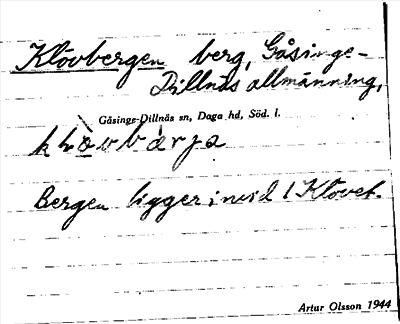 Klövbergen berg, Gåsinge-
Dillnäs allmänning,
Gåsinge-Dillnäs sn, Daga hd, Söd. l.
Bergen ligger invid 1 Klövet.
Artur Olsson 1944